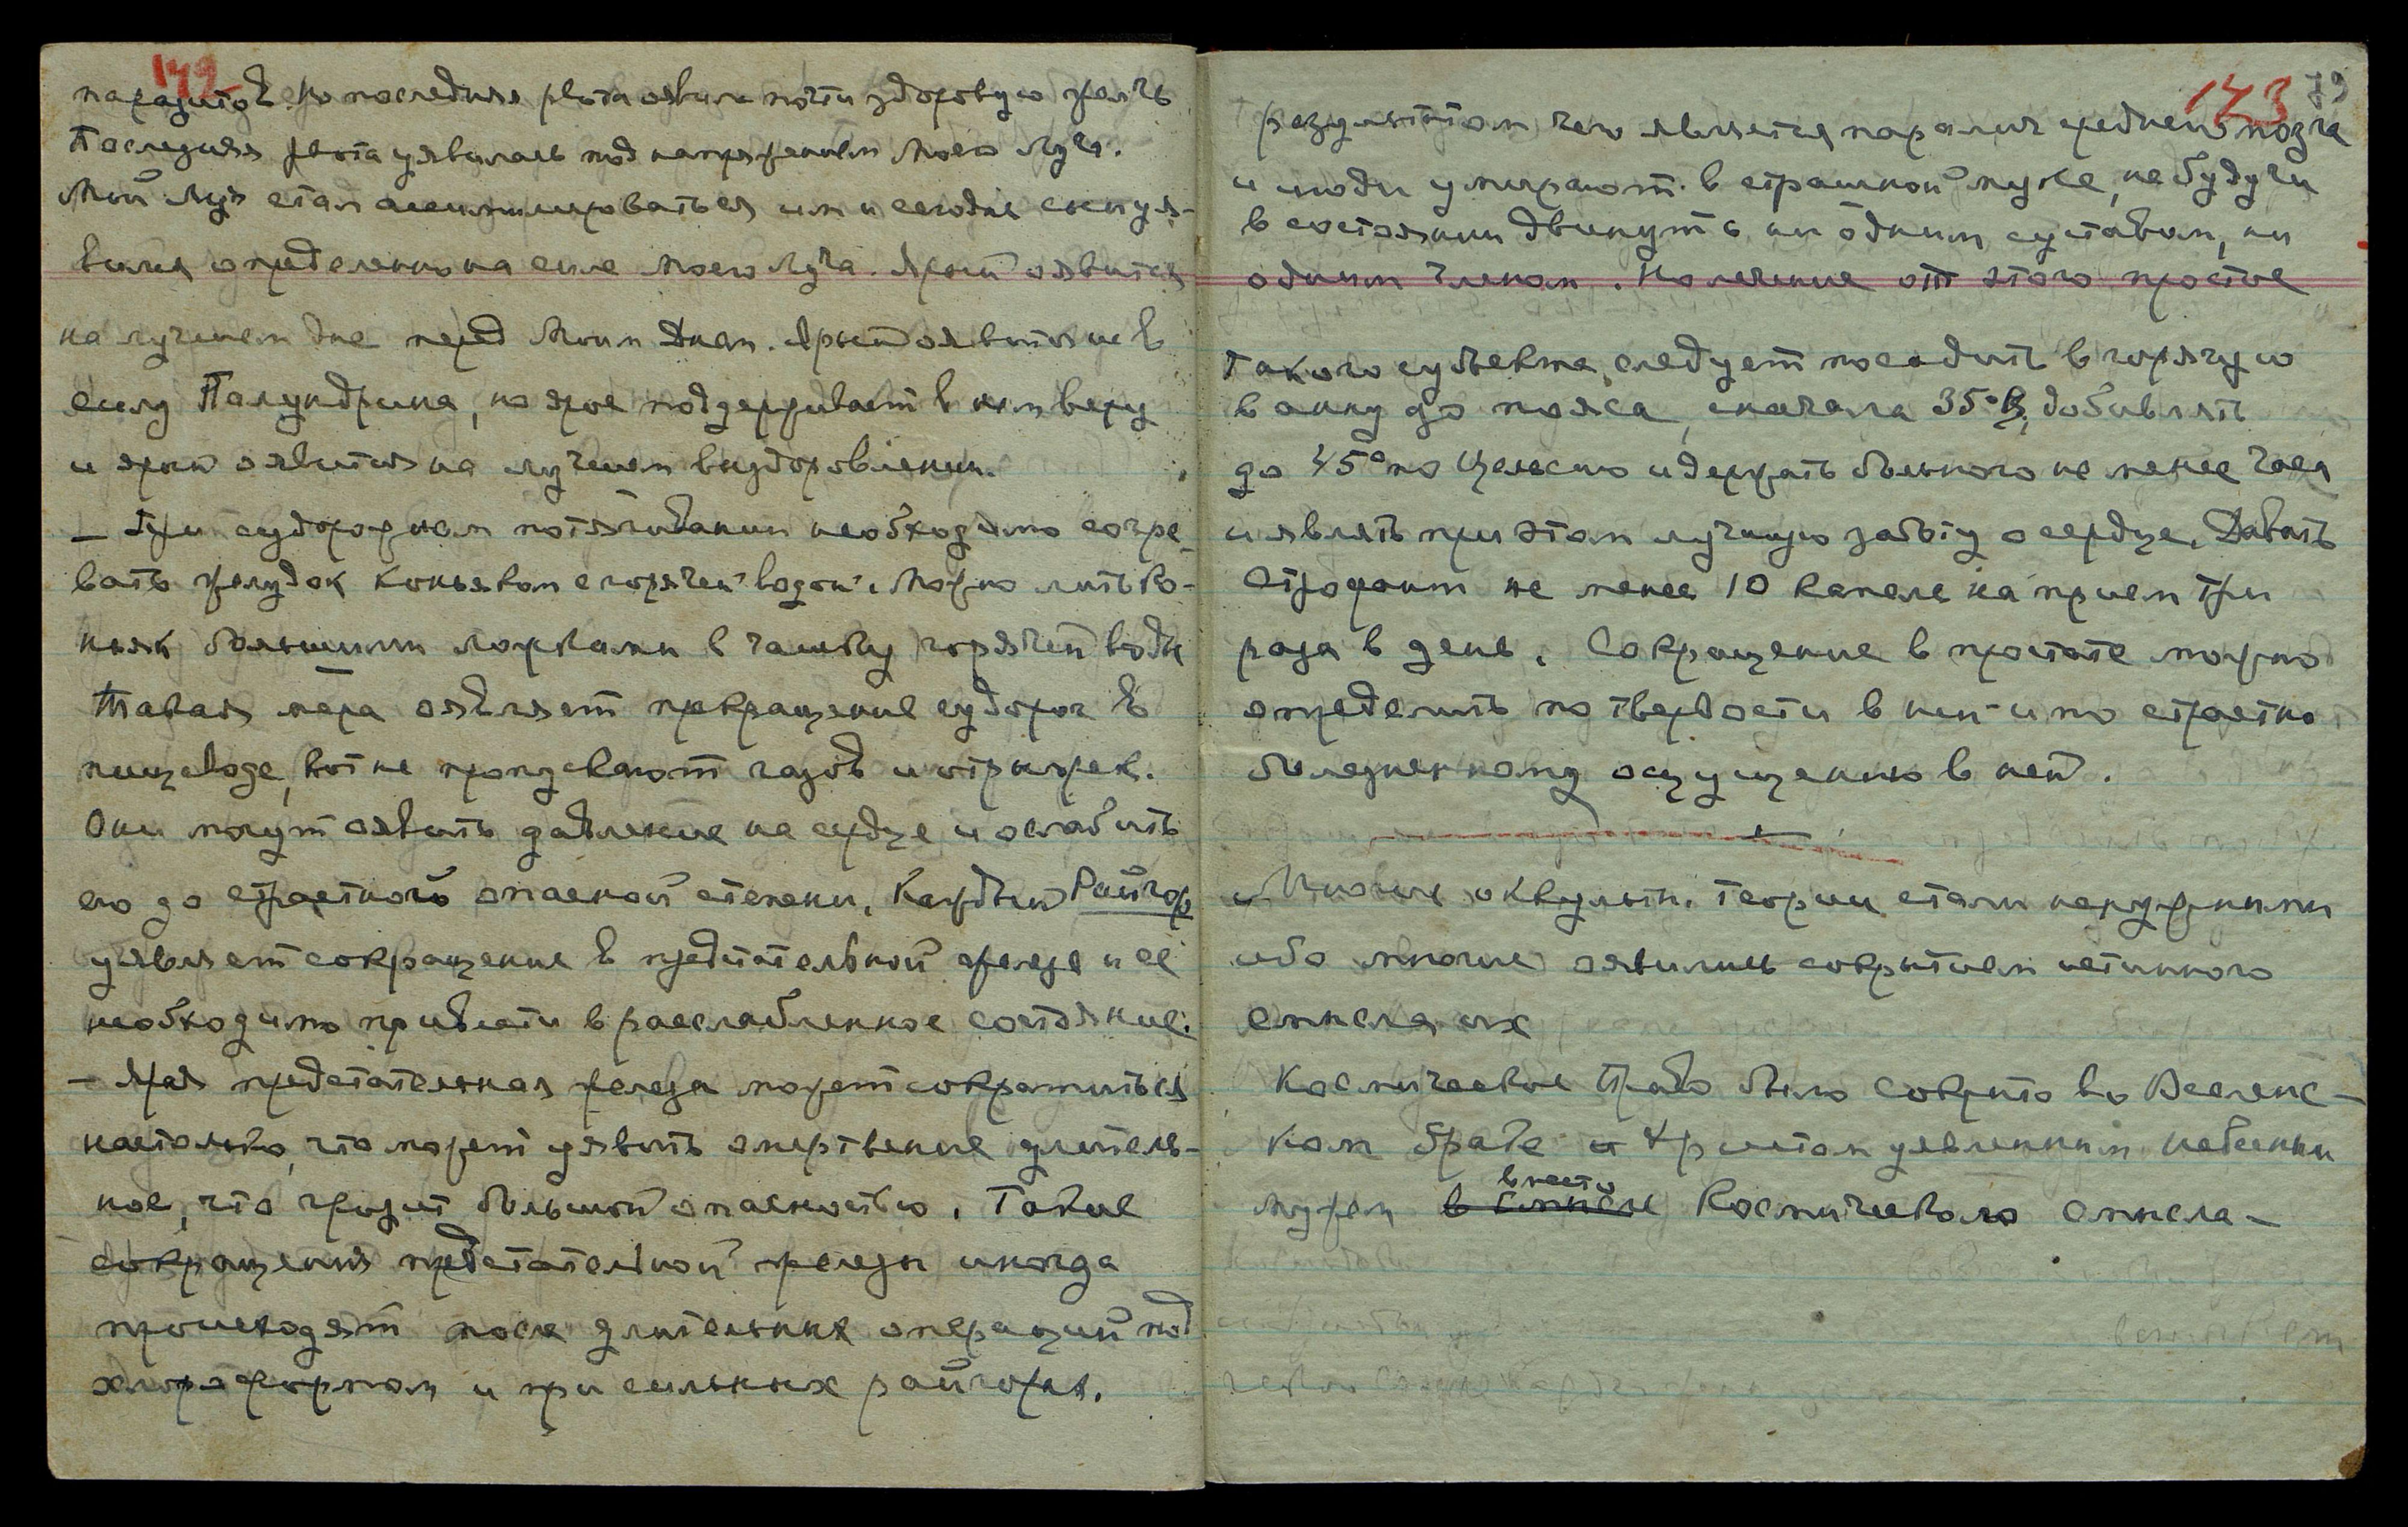 142
паразитов. Но последняя рвота оявила почти здоровую желчь
Последняя рвота уявилась под напряжением Моего Луча.
Мой Луч стал ассимилироваться им и сегодня
определенно на силе Моего Луча. Ярый оявится
на лучшем дне перед Моим Днем. Ярый оявится не в
силу Палундрина, но яро поддерживает в нем веру
и ярый оявится на лучшем выздоровлении.
— При судорожном потягивании необходимо согре-
вать желудок коньяком с горячей водой. Можно лить ко-
ньяк большими ложками в чашку горячей воды
Такая мера оявляет прекращение судорог в
пищеводе, кот не пропускают газов и отрыжек.
Они могут оявить давление на сердце и ослабить
его до страстного опасной степени. Каждый Райгор
уявляет сокращение в предстательной железе и её
необходимо привести в расслабленное состояние.
— Ярая предстательная железа может сократиться
настолько, что может уявить омертвение длитель-
ное, что грозит большой опасностью. Такие
сокращения предстательной железы иногда
происходят после длительных операций под
хлороформом и при сильных райгорах.
143 79
результатом чего является паралич среднего мозга
и люди умирают в страшной муке, не будучи
в состоянии двинуть ни одним суставом, ни
одним членом. Но лечение от этого простое
Такого субъекта следует посадить в горячую
ванну до пояса, сначала 35° добавлять
до 45° по Цельсию и держать больного не менее часа
и являть при этом лучшую заботу о сердце. Давать
Строфант не менее 10 капель на прием три
раза в день. Сокращение в простате можно
определить по твердости в ней и по страстно
болезненному ощущению в ней.
Многие оккультн. теории стали ненужными
ибо многие оявились сокрытием истинного
смысла их
Космическое Право было сокрыто во Вселенс-
ком браке и Христом уявленным небесным
мужем в смысле вместо Космического смысла —